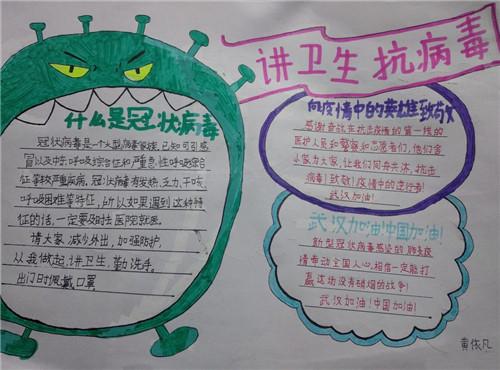 讲卫生 抗病毒
什么是冠状病毒
冠状病毒是一个大型病毒家族,已知可引感
冒以及中东呼吸综合征和严重急性呼吸综合
征等较严重疾病,冠状病毒有发热、乏力、干咳、
呼吸困难等特征,所以如果遇到这种特
征的话,一定要及时去医院就医。
请大家减少外出,加强防护,
从我做起,讲卫生,勤洗手。
出门时佩戴口罩
向疫情中的英雄致敬
感谢奋战在抗击疫情的第一线的
医护人员和警察和志愿者们,他们舍
小家为大家,让我们同舟共济,抗击
病毒!致敬!疫情中的逆行者!
武汉加油!
武汉加油!中国加油!
新型冠状病毒感染的肺炎疫
情牵动全国人心,相信一定能打
赢这场没有硝烟的战争!
武汉加油!中国加油!
黄依凡